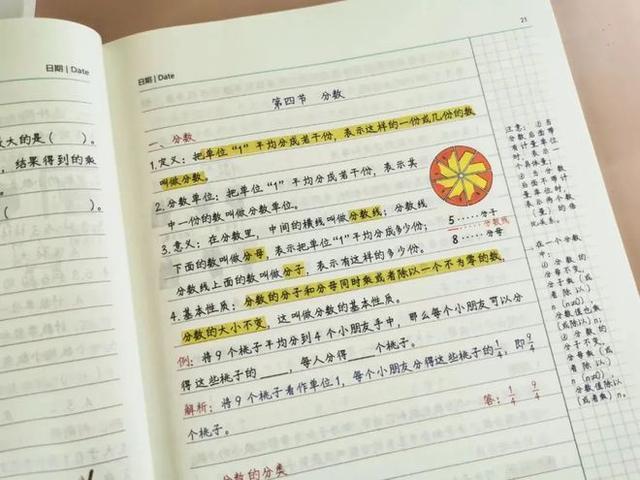 日期 | Date
大的是（ ）。
，结果得到的乘
（ ）。
21
日期 | Date
第四节 分数
一、分数
1.定义：把单位“1”平均分成若干份，表示这样的一份或几份的数
叫做分数。
2.分数单位：把单位“1”平均分成若干份，表示其
中一份的数叫做分数单位。
3.意义：在分数里，中间的横线叫做分数线；分数线
下面的数叫做分母，表示把单位“1”平均分成多少份；
分数线上面的数叫做分子，表示有这样的多少份。
5……分子
……分数线
8……分母
4.基本性质：分数的分子和分母同时乘或者除以一个不为零的数，
分数的大小不变，这叫做分数的基本性质。
例：将9个桃子平均分到4个小朋友手中，那么每个小朋友可以分
得这些桃子的____，每人分得____个桃子。
解析：将9个桃子看作单位1，每个小朋友分得这些桃子的1/4，即9/4
个桃子。
答：1/4 9/4
分数的分类
注意：①当
分数后面带
有计量单位
时，表示一
个具体量；
②当分数
后面不带计
量单位时，
表示两个数
（量）的倍
比关系。
在一个分数
中，
①分数的分
母不变，
分子乘（或
者除以）
n(n≠0)
分数值也乘
(或除以) n；
②分数的
分子不变，
分母乘（或
者除以）
n(n≠0)
分数值除以
（或者乘）n。